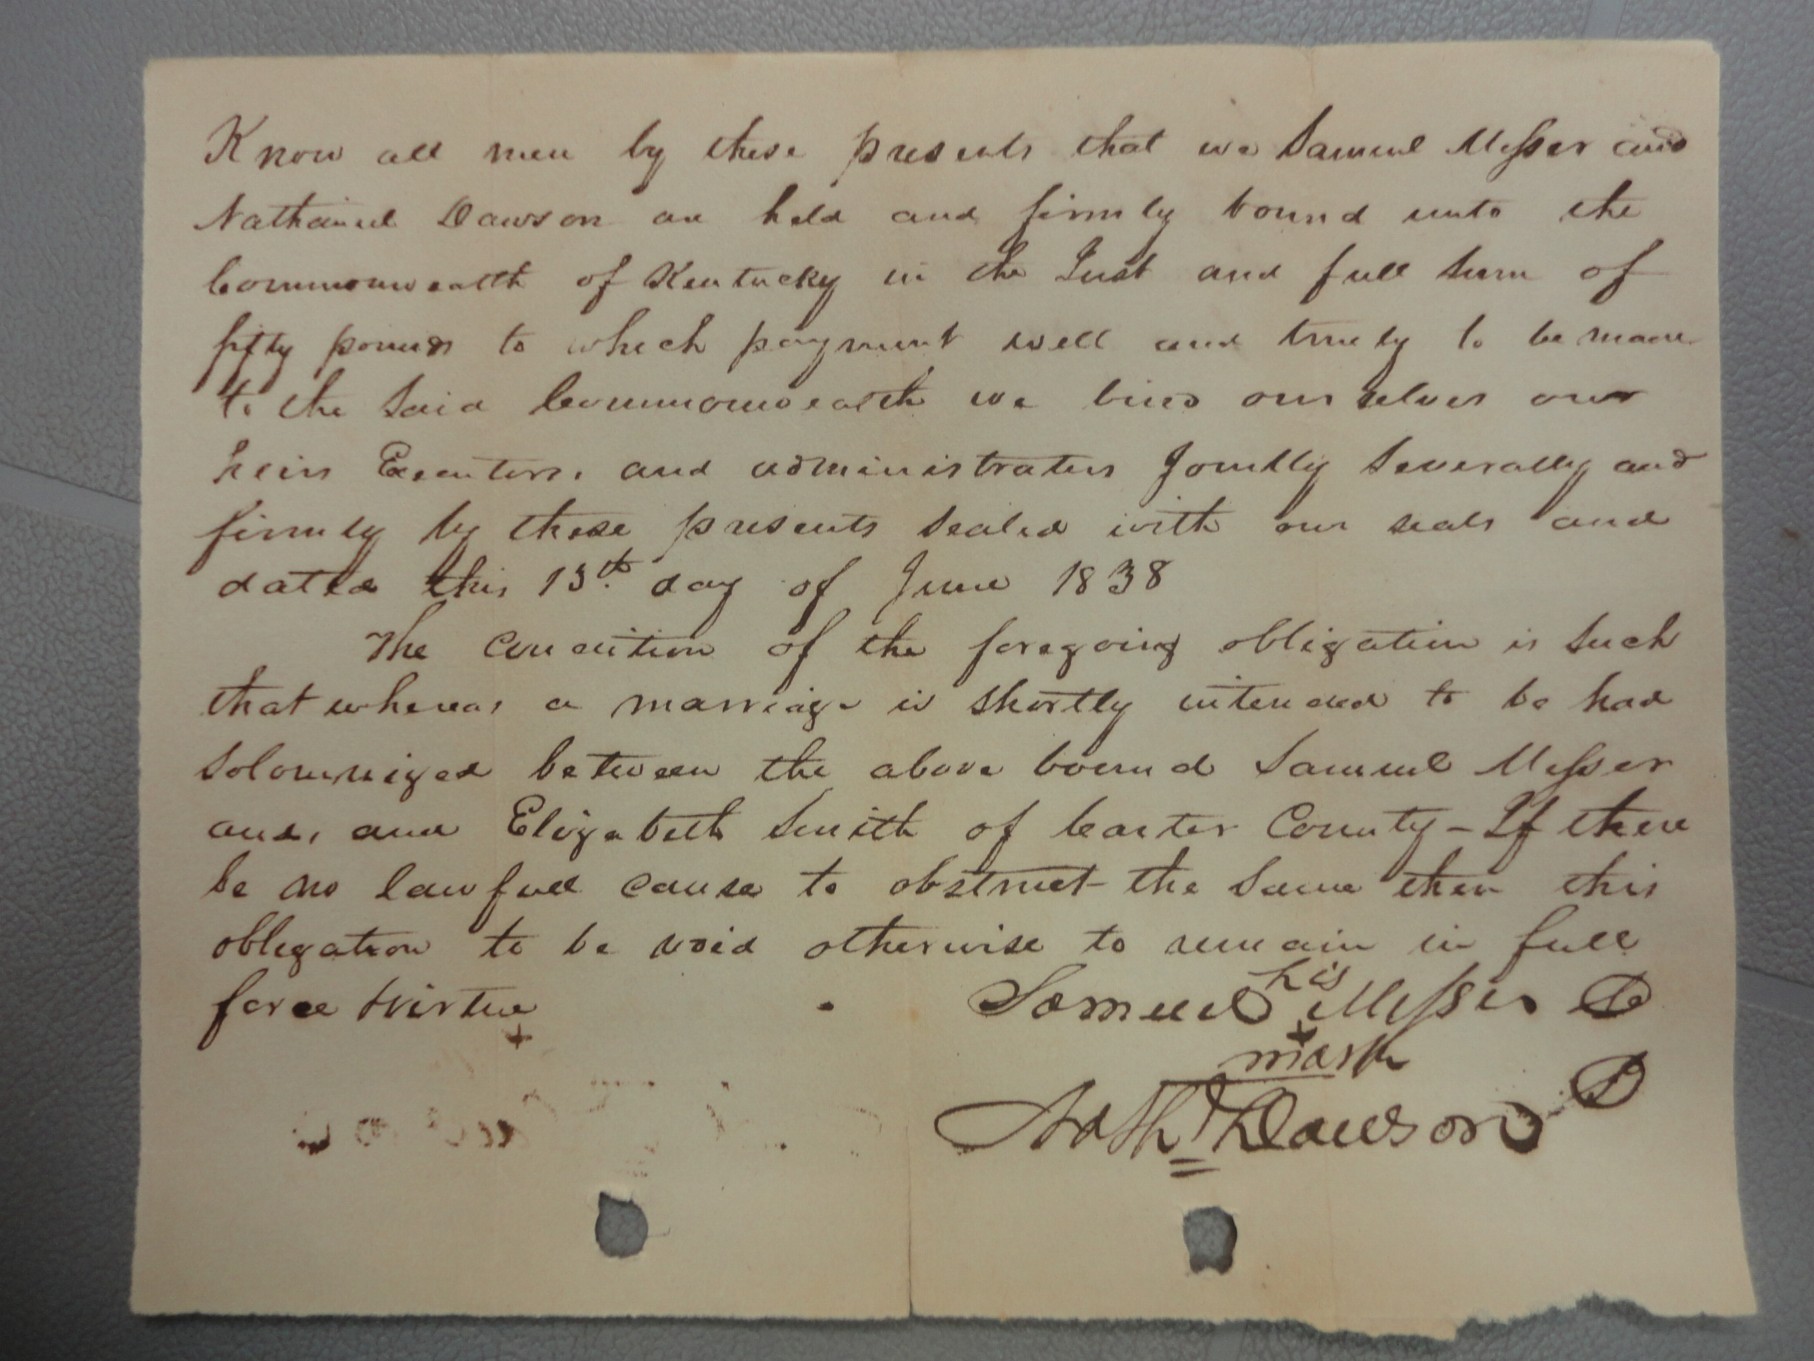 Know all men by these presents that we Samuel Messer and
Nathaniel Dawson are held and firmly bound unto the
Commonwealth of Kentucky in the Just and full Sum of
fifty pounds to which payment well and truely to be made
to the Said Commonwealth we bind ourselves our
heirs Executors, and administrators Jointly Severally and
firmly by these presents sealed with our seals and
dated this 13th day of June 1838
The Condition of the foregoing obligation is Such
that whereas a marriage is shortly intended to be had
Solomnized between the above bound Samuel Messer
and, and Elizabeth Smith of Carter County - If there
be no lawfull cause to obstruct the Same then this
obligation to be void otherwise to remain in full
force & virtue
Samuel his Messer
+
mark
Nath Dawson